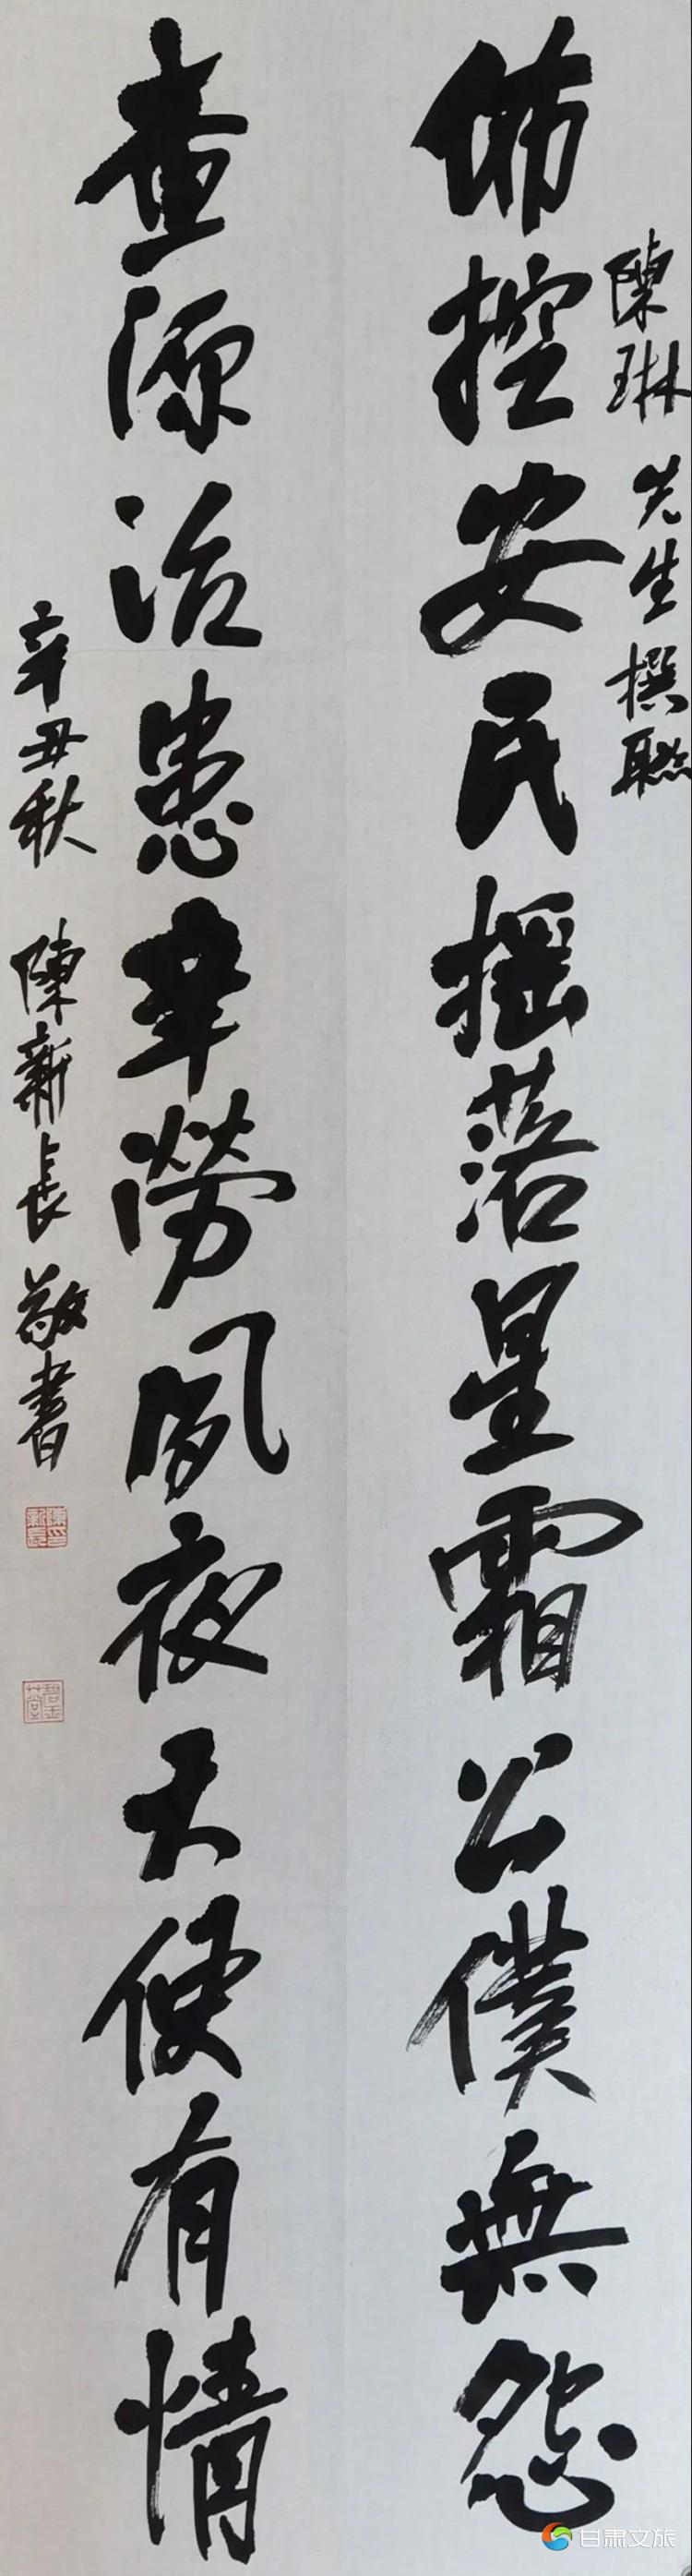 陳琳先生撰聯
佈控安民摇落星霜公僕無怨
查源治患辛勞夙夜天使有情
辛丑秋 陳新長敬書
甘肃文旅